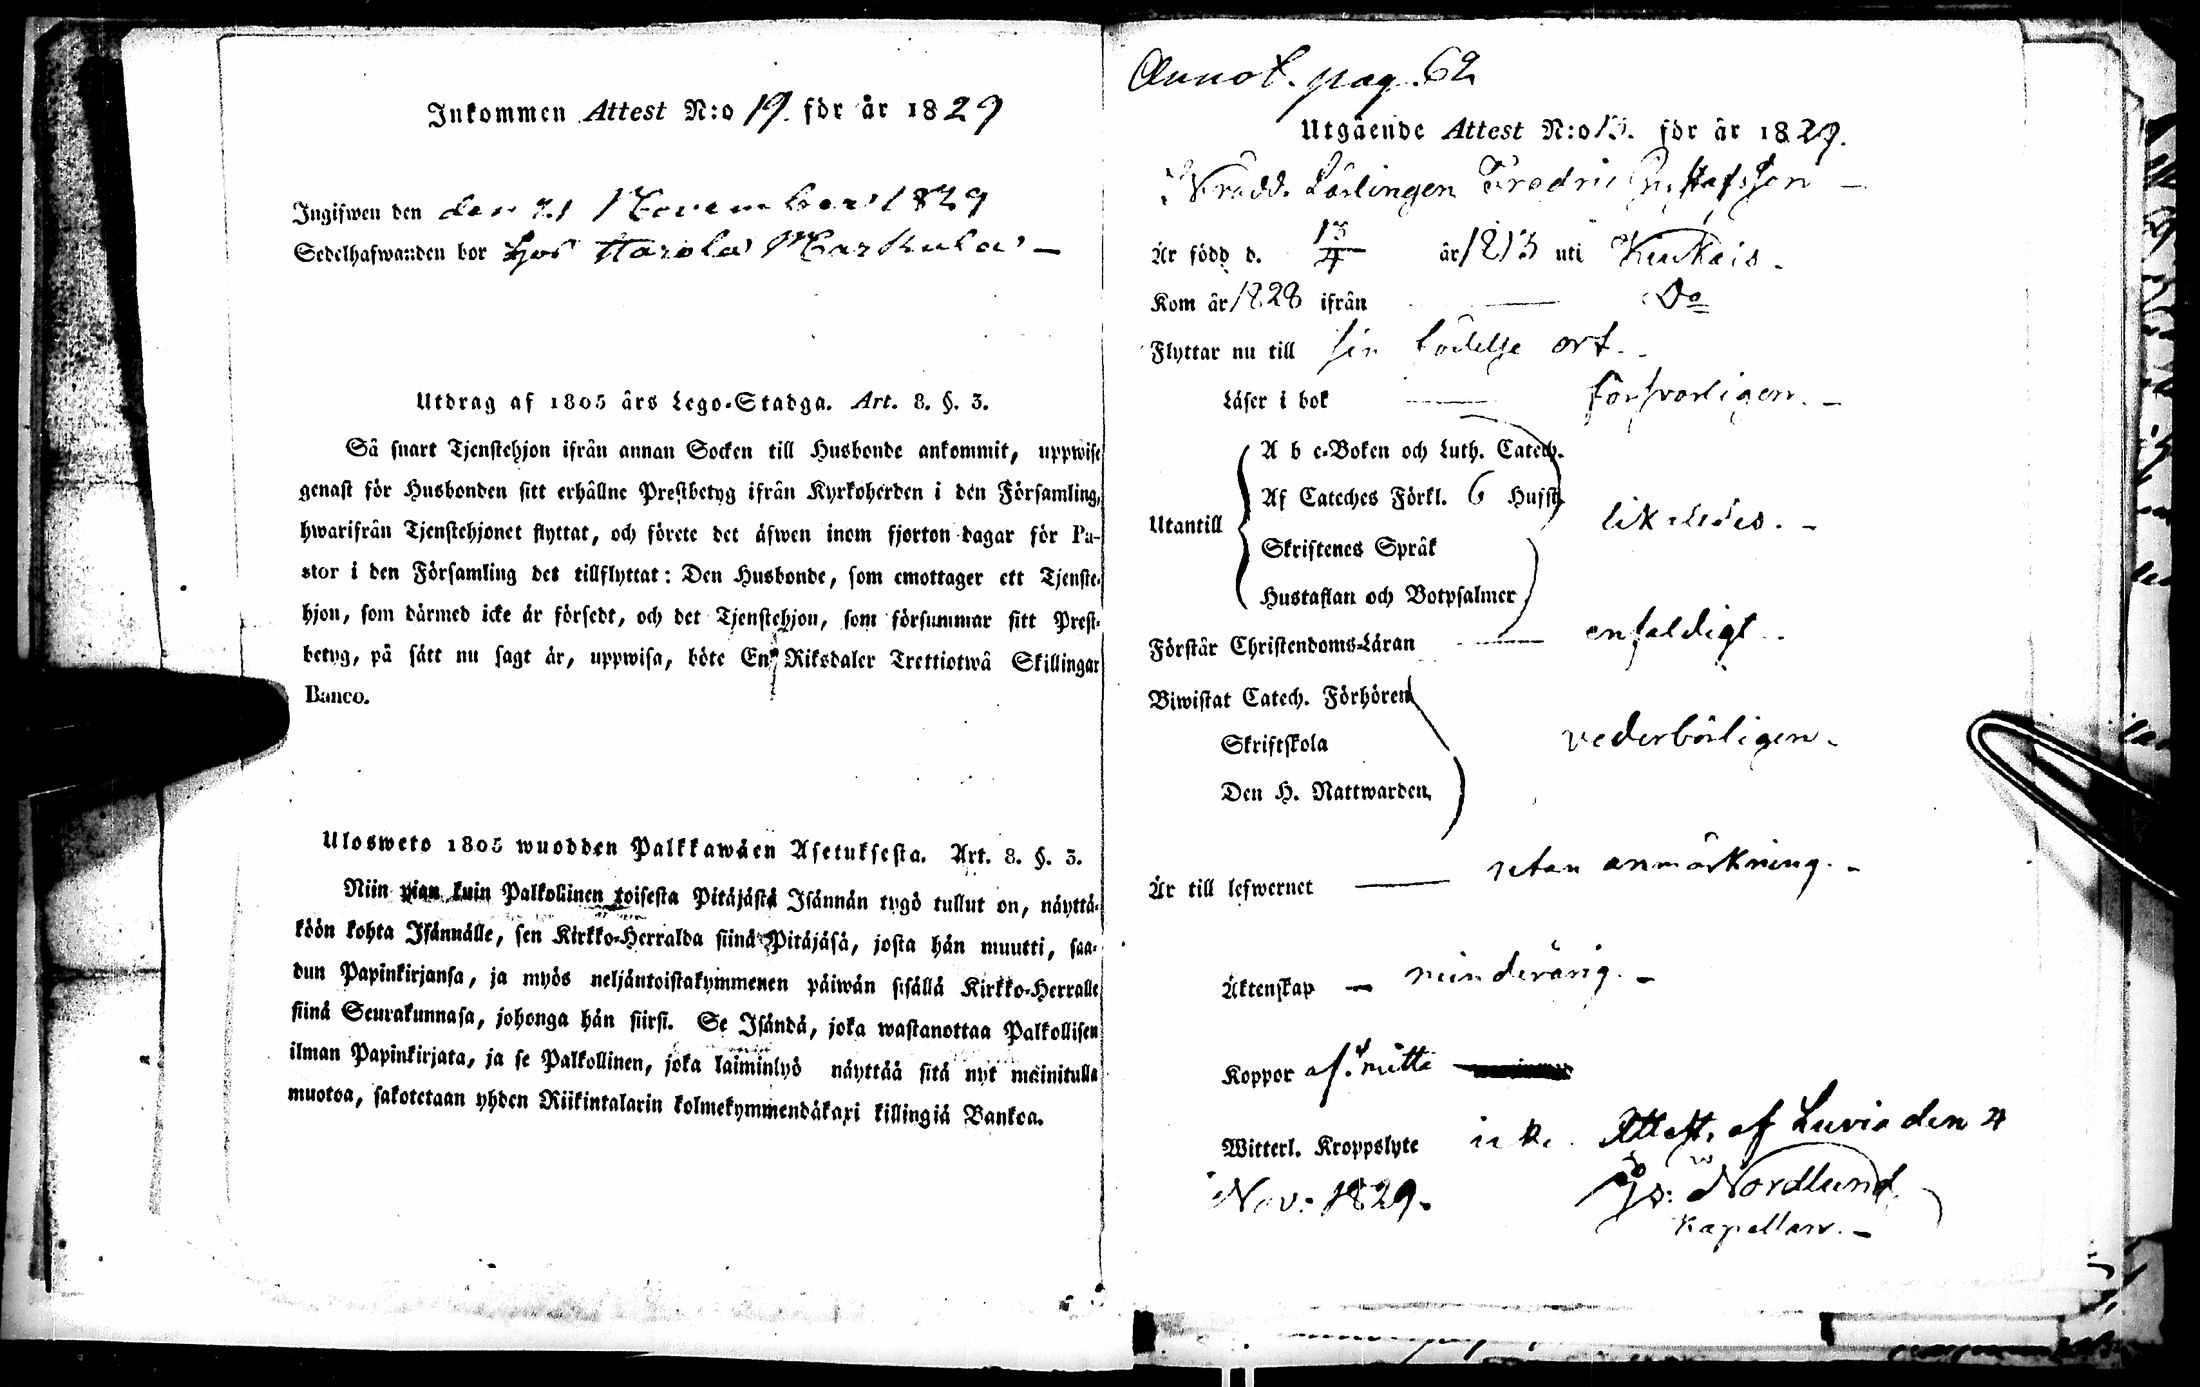 Inkommen Attest N:o 19. för år 1829
Ingifwen den den 21 November 1829
Sedelhafwanden bor hos Harola Markula
Utdrag af 1805 års Lego-Stadga. Art. 8. §. 3.
Så snart Tjenstehjon ifrån annan Socken till Husbonde ankommit, uppwise
genast för Husbonden sitt erhållne Prestbetyg ifrån Kyrkoherden i den Församling,
hwarifrån Tjenstehjonet flyttat, och förete det äfwen inom fjorton dagar för Pa-
stor i den Församling det tillflyttat: Den Husbonde, som emottager ett Tjenste-
hjon, som därmed icke är försedt, och det Tjenstehjon, som försummar sitt Prest-
betyg, på sått nu sagt är, uppwisa, böte En Riksdaler Trettiotwå Skillingar
Banco.
Ulosweto 1805 wuodden Palkkawäen Asetuksesta. Art. 8. §. 3.
Niin pian kuin Palkollinen toisesta Pitäjästä Isännän tygö tullut on, näyttä-
köön kohta Isännälle, sen Kirkko-Herralda siinä Pitäjäsä, josta hän muutti, saa-
dun Papinkirjansa, ja myös neljäntoistakymmenen päiwän sisällä Kirkko-Herralle
siinä Seurakunnasa, johonga hän siirsi. Se Isändä, joka wastanottaa Palkollisen
ilman Papinkirjata, ja se Palkollinen, joka laiminlyö näyttää sitä nyt mainitulla
muotoa, sakotetaan yhden Riikintalarin kolmekymmendäkaxi killingiä Bankoa.
Annot. pag. 62
Utgående Attest N:o 13. för år 1829.
Skrädd. Lärlingen Fredric Gustafsson
Är född d. 13/4 år 1813 uti Kiukais.
Kom år 1828 ifrån Do
Flyttar nu till sin födelse ort.
Läser i bok försvarligen.
A b c-Boken och Luth. Catech.
Af Cateches Förkl. 6 Hufst.
Utantill likaledes.
Skriftenes Språk
Hustaflan och Botpsalmer
Förstår Christendoms-Läran enfaldigt.
Biwistat Catech. Förhören
Skriftskola vederbörligen.
Den H. Nattwarden,
Är till lefwernet utan anmärkning.
Äktenskap minderårig.
Koppor af:mitte
Witterl. Kroppslyte icke. Attest. af Luvia den 4
Nov: 1829. Nordlund
Kapellan.